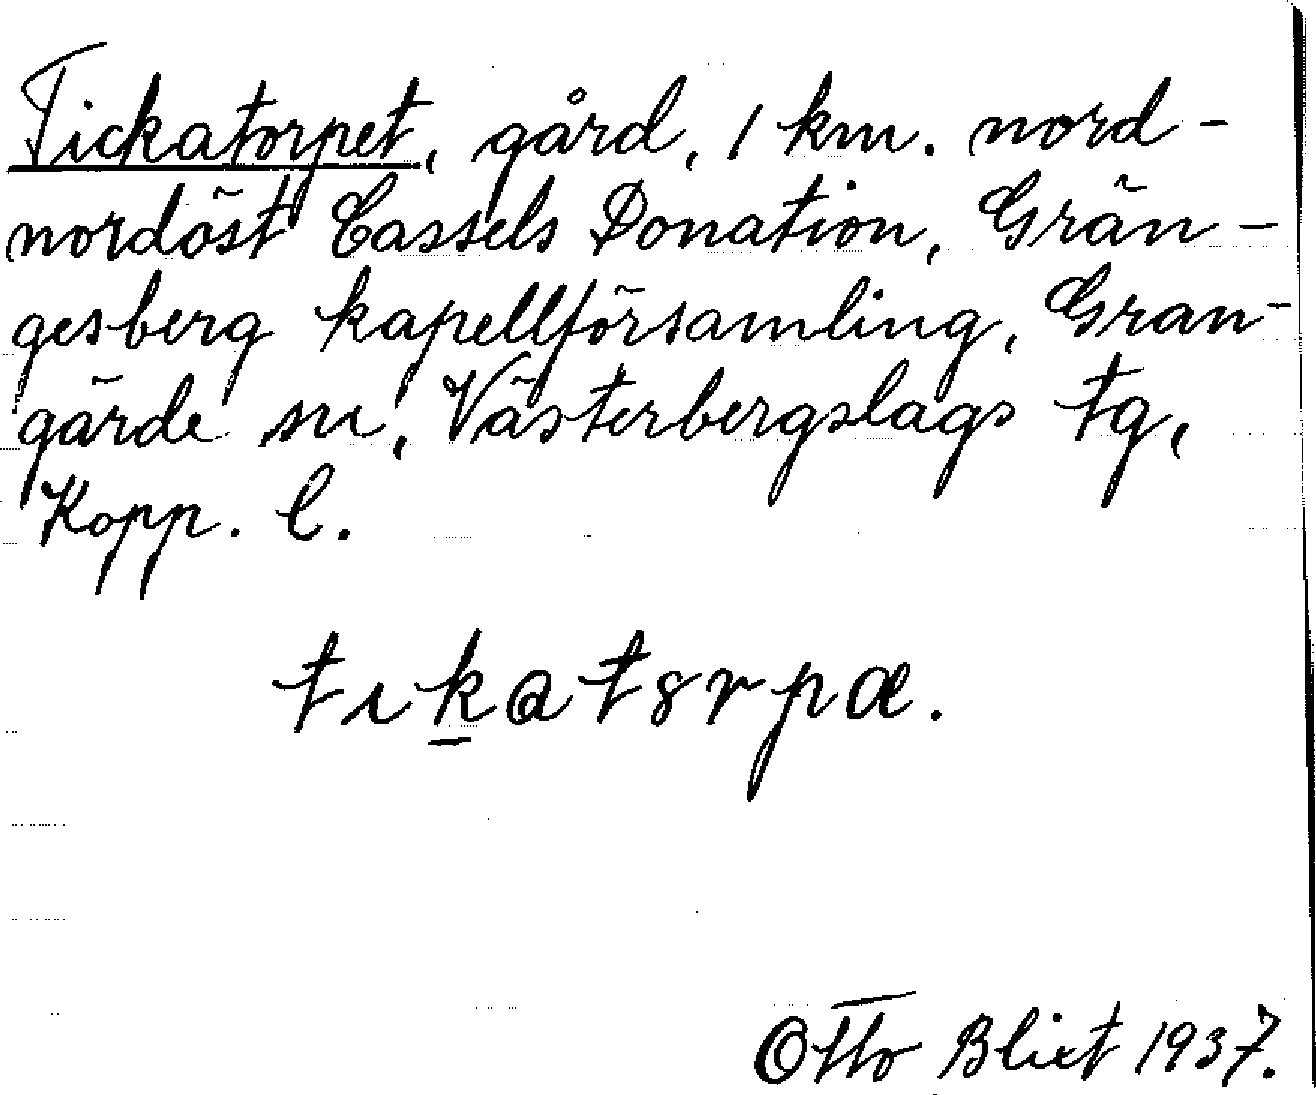 Tickatorpet, gård, 1 km. nord-
nordöst Cassels Donation, Grän-
gesberg kapellförsamling, Gran-
gärde sn, Västerbergslags tg,
Kopp. l.
tıkatɞrpæ.
Otto Blixt 1937.